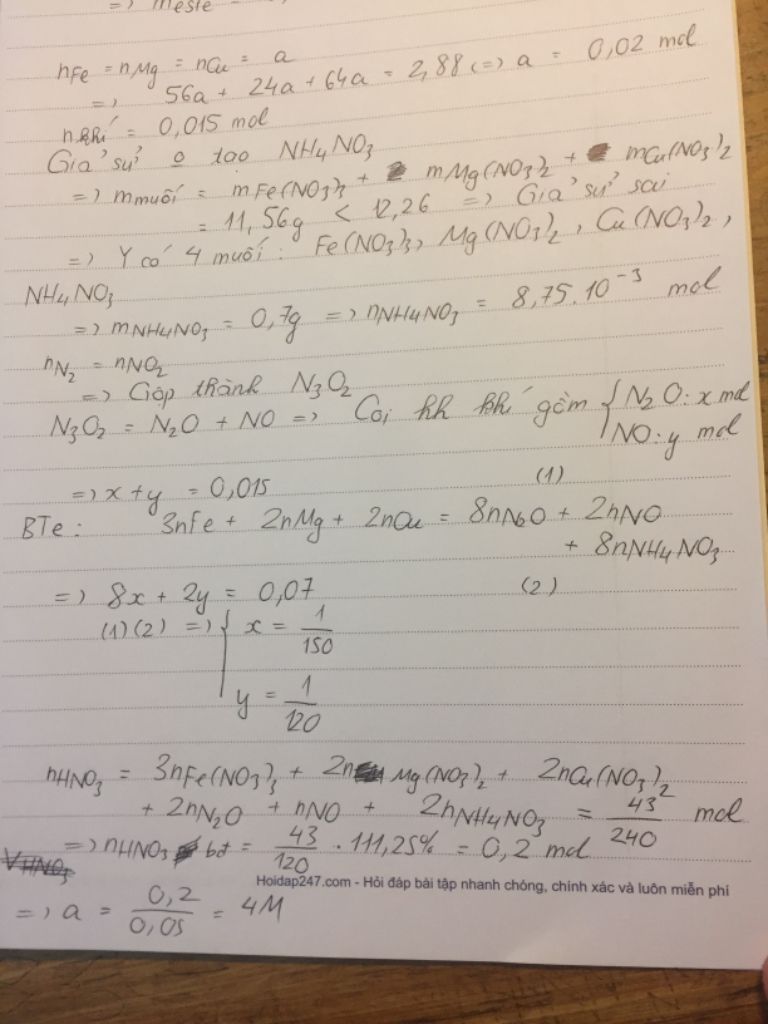 => meste
nFe = nMg = nCu = a
=> 56a + 24a + 64a = 2,88 <=> a = 0,02 mol
nkhí = 0,015 mol
Giả sử 0 tạo NH4NO3
=> mmuối = mFe(NO3)3 + mMg(NO3)2 + mCu(NO3)2
= 11,56g < 12,26 => Giả sử sai
=> Y có 4 muối : Fe(NO3)3, Mg(NO3)2, Cu(NO3)2,
NH4NO3
=> mNH4NO3 = 0,7g => nNH4NO3 = 8,75.10⁻³ mol
nN2 = nNO2
=> Gộp thành N3O2
N3O2 = N2O + NO => Coi hh khí gồm { N2O: x mol
NO: y mol
=> x + y = 0,015 (1)
BTe: 3nFe + 2nMg + 2nCu = 8nN2O + 2nNO
+ 8nNH4NO3
=> 8x + 2y = 0,07 (2)
(1)(2) => { x = 1/150
y = 1/120
nHNO3 = 3nFe(NO3)3 + 2nMg(NO3)2 + 2nCu(NO3)2
+ 2nN2O + nNO + 2nNH4NO3 = 43/240 mol
=> nHNO3 bđ = 43/120 . 111,25% = 0,2 mol
VHNO3
Hoidap247.com - Hỏi đáp bài tập nhanh chóng, chính xác và luôn miễn phí
=> a = 0,2/0,05 = 4M